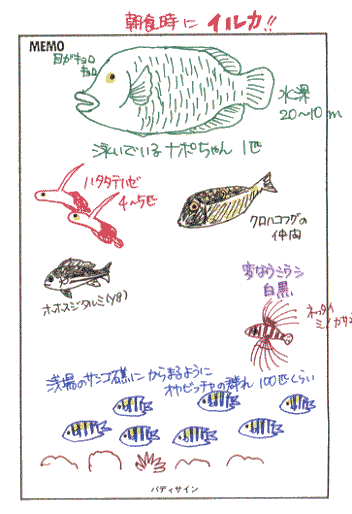 朝食時に イルカ!!
MEMO
目がキョロ
キョロ
水深
20〜10m
泳いでいるナポちゃん 1匹
ハタタテハゼ
4〜5匹
クロハコフグの
仲間
ホホスジタルミ(yg)
変なウミウシ
白黒
ネッタイ
ミノカサゴ
浅場のサンゴ礁にからまるように
オヤビッチャの群れ 100匹くらい
バディサイン